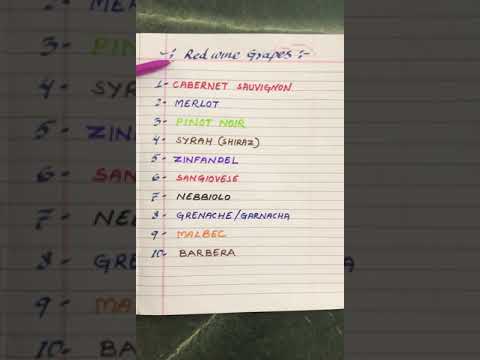 ~: Red wine Grapes :-
1- CABERNET SAUVIGNON
2- MERLOT
3- PINOT NOIR
4- SYRAH (SHIRAZ)
5- ZINFANDEL
6- SANGIOVESE
7- NEBBIOLO
8- GRENACHE/GARNACHA
9- MALBEC
10- BARBERA